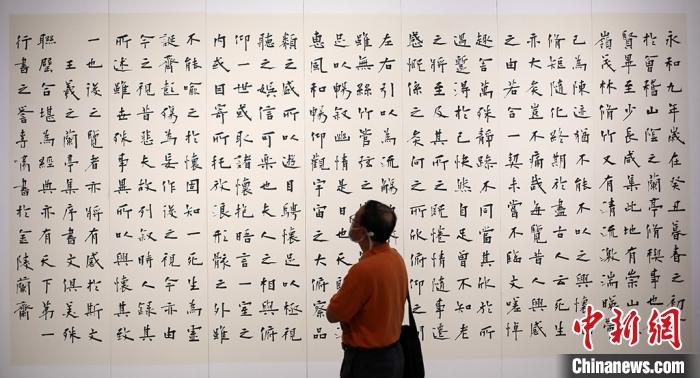 永和九年歲在癸丑暮春之初
於會稽山陰之蘭亭脩稧事也
賢畢至少長咸集此地有崇山
嶺茂林脩竹又有清流激湍映帶
已為陳迹猶不能不以之興懷況
脩短隨化終期於盡古人云死生
亦大矣豈不痛哉每覽昔人興感
之由若合一契未嘗不臨文嗟悼
趣舍萬殊靜躁不同當其欣於所
遇暫得於己快然自足不知老
之將至及其所之既倦情隨事遷
感慨係之矣向之所欣俛仰之
左右引以為流觴曲水
雖無絲竹管弦之盛
足以暢敘幽情是日也天
惠風和暢仰觀宇宙之大俯察品
類之盛所以遊目騁懷足以極視
聽之娛信可樂也夫人之相與俯
仰一世或取諸懷抱悟言一室之
內或因寄所託放浪形骸之外雖
不能喻之於懷固知一死生為虛
誕齊彭殤為妄作後之視今亦由
今之視昔悲夫故列敘時人錄其
所述雖世殊事異所以興懷其致
一也後之覽者亦將有感於斯文
王羲之蘭亭集序書文俱美殊
聯璧合堪為經典亦有天下第一
行書之譽 書於金陵蘭齋
中新网
Chinanews.com